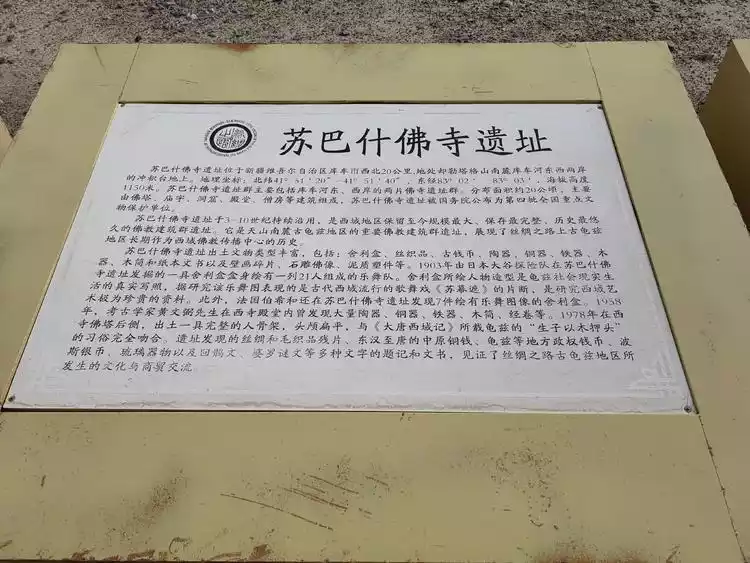 苏巴什佛寺遗址
苏巴什佛寺遗址位于新疆维吾尔自治区库车市西北20公里,地处却勒塔格山南麓库车河东西两岸
的冲积台地上。地理坐标:北纬41°51′20″-41°51′40″,东经83°02′-83°03′,海拔高度
1150米。苏巴什佛寺遗址群主要包括库车河东、西岸的两片佛寺遗址群。分布面积约20公顷,主要
由佛塔、庙宇、洞窟、殿堂、僧房等建筑组成,苏巴什佛寺遗址被国务院公布为第四批全国重点文
物保护单位。
苏巴什佛寺遗址于3-10世纪持续沿用,是西域地区保留至今规模最大、保存最完整、历史最悠
久的佛教建筑群遗址。它是天山南麓古龟兹地区的重要佛教建筑群遗址,展现了丝绸之路上古龟兹
地区长期作为西域佛教传播中心的历史。
苏巴什佛寺遗址出土文物类型丰富,包括:舍利盒、丝织品、古钱币、陶器、铜器、铁器、木
器、木简和纸本文书以及壁画碎片、石雕佛像、泥质塑件等。1903年由日本大谷探险队在苏巴什佛
寺遗址发掘的一具舍利盒盒身绘有一列21人组成的乐舞队。舍利盒所绘人物造型是龟兹社会现实生
活的真实写照,据研究该乐舞图表现的是古代西域流行的歌舞戏《苏幕遮》的片断,是研究西域艺
术极为珍贵的资料。此外,法国伯希和还在苏巴什佛寺遗址发现7件绘有乐舞图像的舍利盒。1958
年,考古学家黄文弼先生在西寺殿堂内曾发现大量陶器、铜器、铁器、木简、经卷等。1978年在西
寺佛塔后侧,出土一具完整的人骨架,头颅扁平,与《大唐西域记》所载龟兹的“生子以木押头”
的习俗完全吻合。遗址发现的丝绸和毛织品残片、东汉至唐的中原铜钱、龟兹等地方政权钱币、波
斯银币、琉璃器物以及回鹘文、婆罗谜文等多种文字的题记和文书,见证了丝绸之路古龟兹地区所
发生的文化与商贸交流